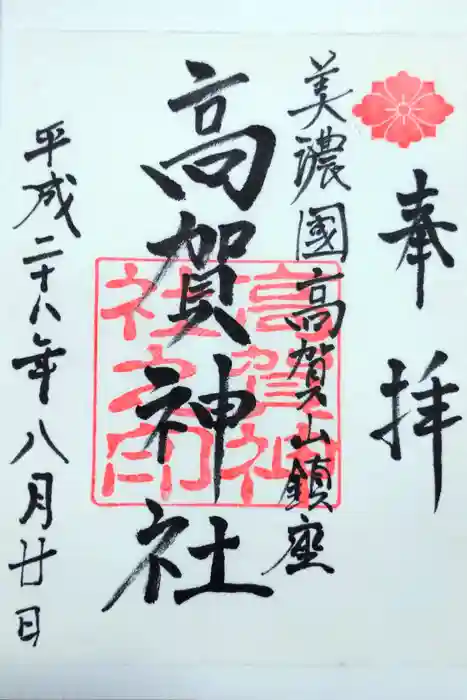 奉拝
美濃國高賀山鎮座
高賀神社
高賀神社之印
平成二十八年八月廿日